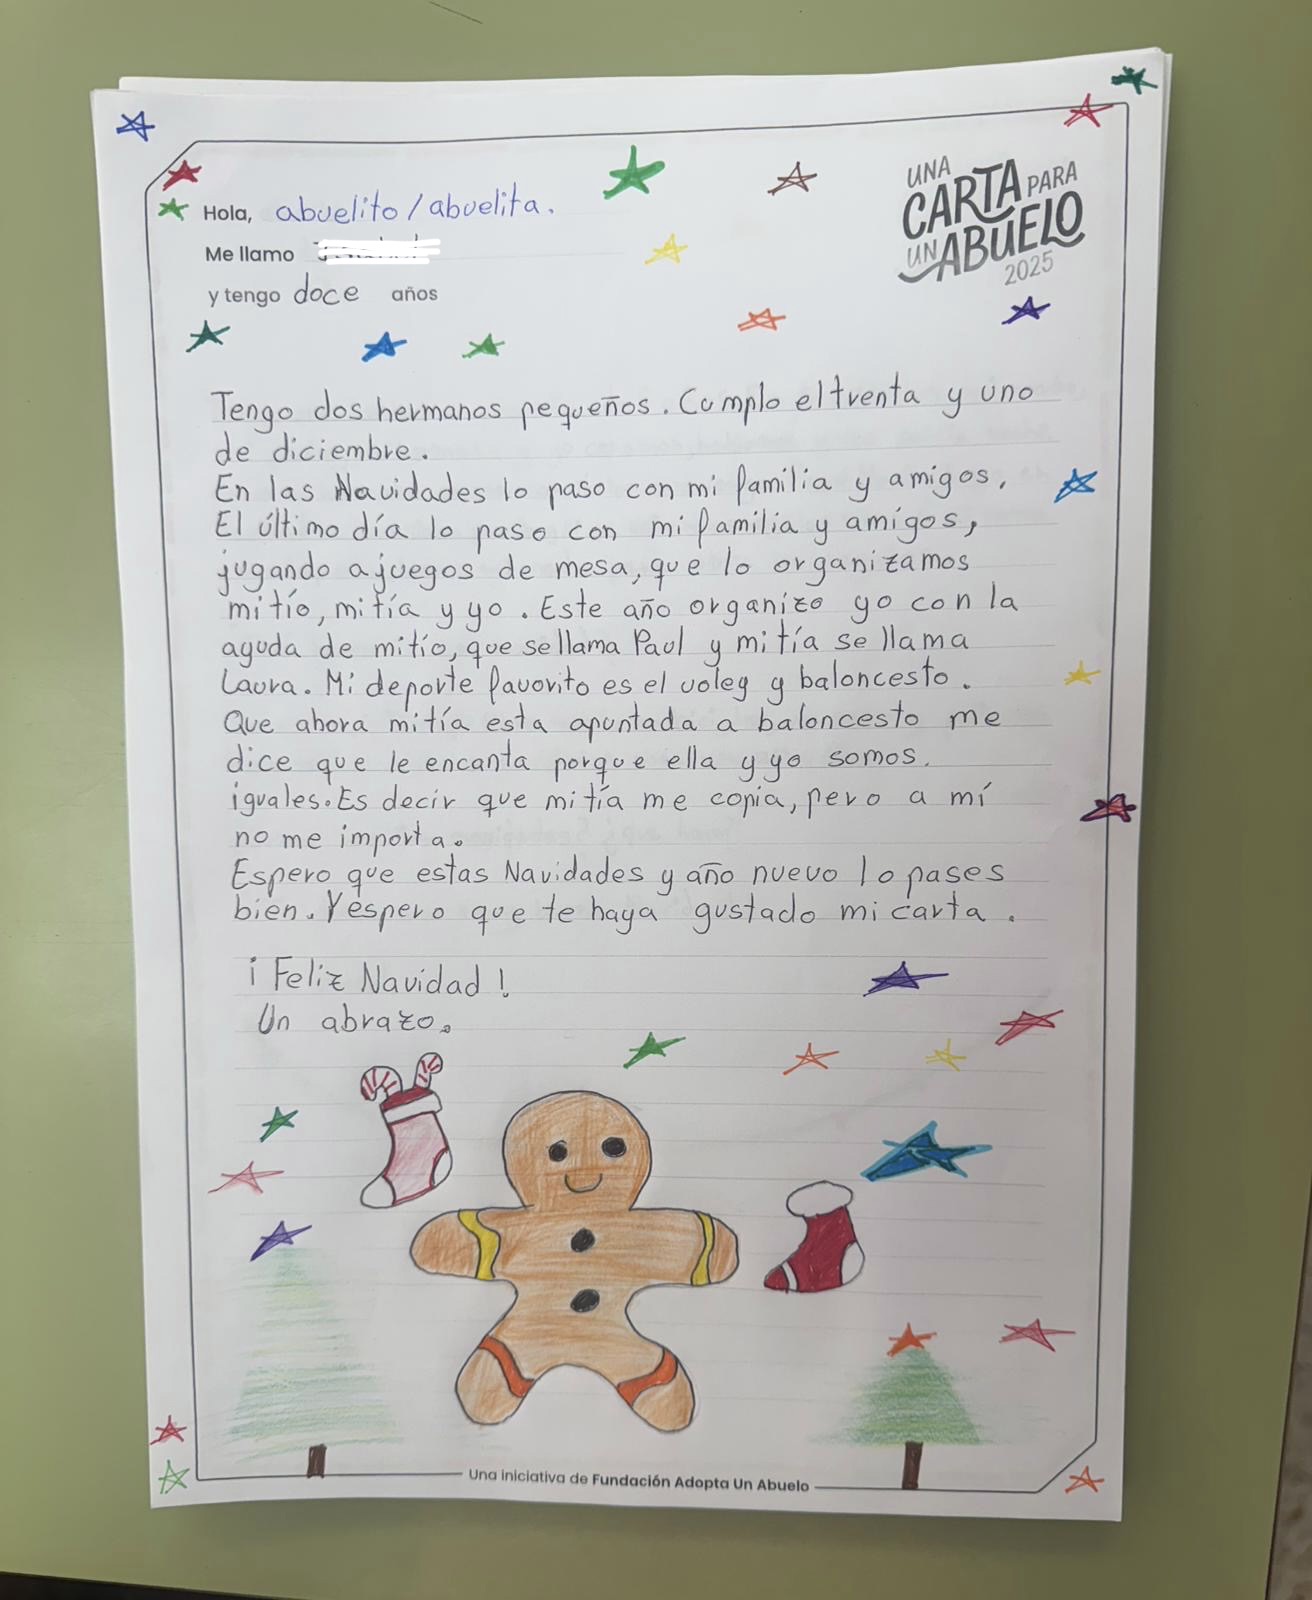 UNA
CARTA PARA
UN ABUELO
2025
Hola, abuelito/abuelita.
Me llamo
y tengo doce años
Tengo dos hermanos pequeños. Cumplo el trenta y uno
de diciembre.
En las Navidades lo paso con mi familia y amigos.
El último día lo paso con mi familia y amigos,
jugando a juegos de mesa, que lo organizamos
mi tío, mi tía y yo. Este año organizo yo con la
aguda de mi tío, que se llama Paul y mi tía se llama
Laura. Mi deporte favorito es el voley y baloncesto.
Que ahora mi tía esta apuntada a baloncesto me
dice que le encanta porque ella y yo somos.
iguales. Es decir que mi tía me copia, pero a mí
no me importa.
Espero que estas Navidades y año nuevo lo pases
bien. Y espero que te haya gustado mi carta.
¡Feliz Navidad!
Un abrazo.
Una iniciativa de Fundación Adopta Un Abuelo